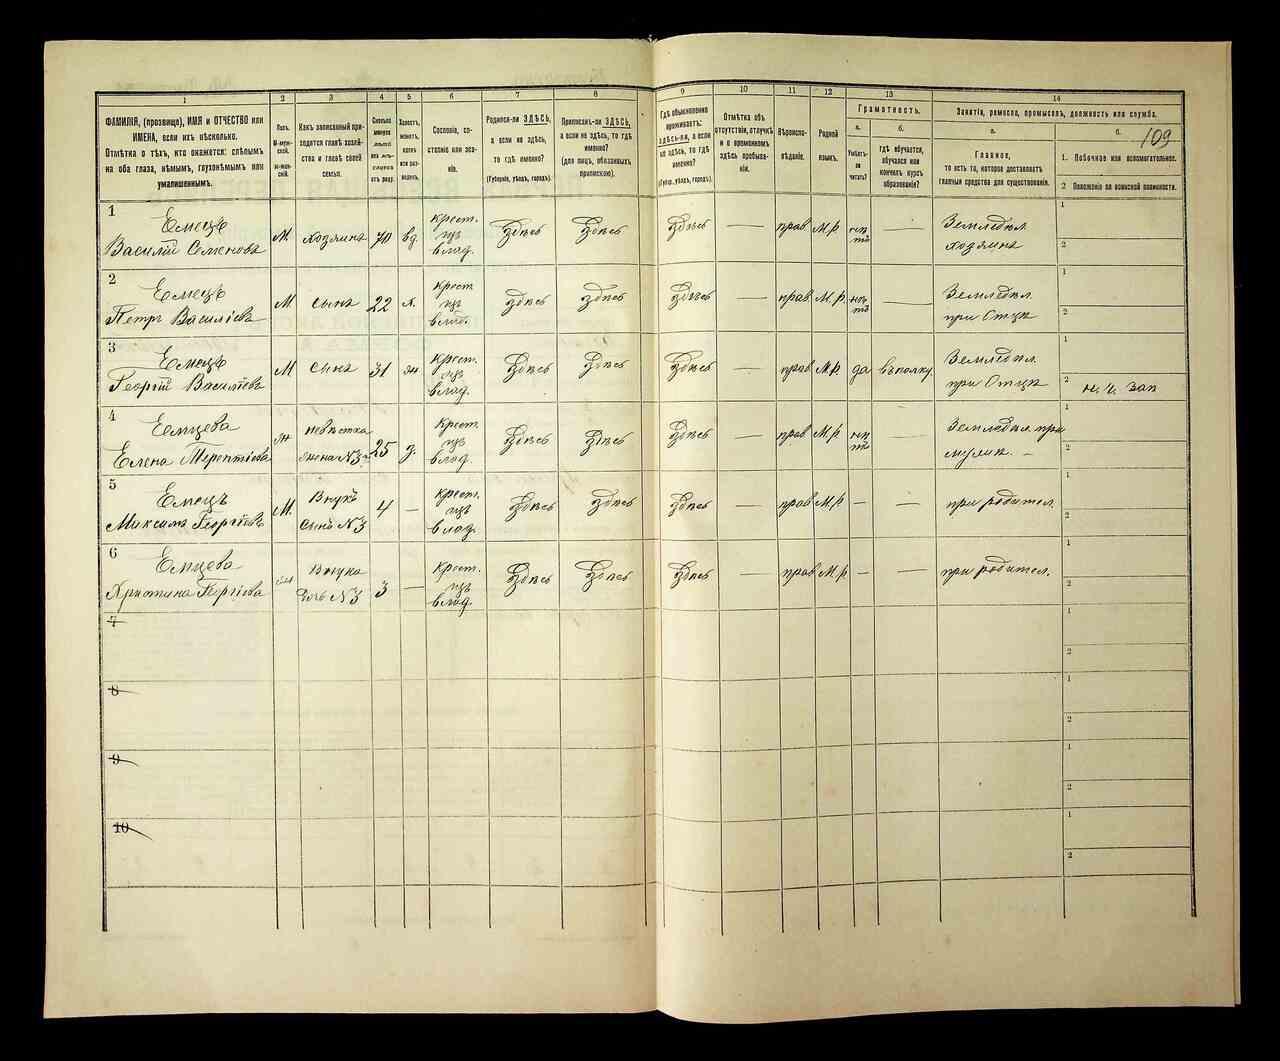 109
1
2
3
4
5
6
7
8
9
10
11
12
13
14
ФАМИЛІЯ, (прозвище), ИМЯ и ОТЧЕСТВО или
ИМЕНА, если ихъ нѣсколько.
Отмѣтка о тѣхъ, кто окажется: слѣпымъ
на оба глаза, нѣмымъ, глухонѣмымъ или
умалишеннымъ.
Полъ.
М-муж-
ской.
Ж-жен-
скій.
Какъ записанный при-
ходится главѣ хозяй-
ства и главѣ своей
семьи.
Сколько
минуло
лѣтъ
Холостъ,
женатъ,
вдовъ
или раз-
веденъ.
Сословіе, со-
стояніе или зва-
ніе.
Родился-ли ЗДѢСЬ,
а если не здѣсь,
то гдѣ именно?
(Губернія, уѣздъ, городъ).
Приписанъ-ли ЗДѢСЬ,
а если не здѣсь, то гдѣ
именно?
(для лицъ, обязанныхъ
припискою).
Гдѣ обыкновенно
проживаетъ:
здѣсь-ли, а если
не здѣсь, то гдѣ
именно?
(Губер., уѣздъ, городъ).
Отмѣтка объ
отсутствіи, отлучкѣ
и о временномъ
здѣсь пребыва-
ніи.
Вѣроиспо-
вѣданіе.
Родной
языкъ.
Грамотность.
а.
Умѣетъ-
ли
читать?
б.
гдѣ обучается,
обучался или
кончилъ курсъ
образованія?
Занятіе, ремесло, промыселъ, должность или служба.
а.
Главное,
то есть то, которое доставляетъ
главныя средства для существованія.
б.
1. Побочное или вспомогательное.
2 Положеніе по воинской повинности.
1
Емецъ
Василій Семеновъ
М. хозяинъ 70 вд.
крест.
изъ
влад.
здѣсь здѣсь здѣсь — прав. М.р. нѣтъ —
Земледѣл.
хозяинъ
1
2
2
Емецъ
Петръ Василіевъ
М сынъ 22 х.
крест
изъ
влад.
здѣсь здѣсь здѣсь — прав. М.р. нѣтъ —
Земледѣл.
при Отцѣ
1
2
3
Емецъ
Георгій Василіевъ
М сынъ 31 ж
крест.
изъ
влад.
Здѣсь Здѣсь Здѣсь — прав М.р. да въ полку.
Земледѣл.
при Отцѣ
2 н. ч. зап
4
Емцева
Елена Терентіева
ж
невѣстка
жена №3
25 з.
крест.
изъ
влад.
Здѣсь здѣсь здѣсь — прав М.р. нѣтъ —
Земледѣл. при
мужѣ. —
1
2
5
Емецъ
Максимъ Георгіевъ
М.
Внукъ
сынъ №3
4 —
крест.
изъ
влад.
Здѣсь здѣсь здѣсь — прав М.р. — —
при родител.
1
2
6
Емцева
Христина Георгіева
ж
Внука
дочь №3
3 —
крест.
изъ
влад.
Здѣсь Здѣсь здѣсь — прав М.р. — —
при родител.
1
2
7
1
2
8
1
2
9
1
2
10
1
2